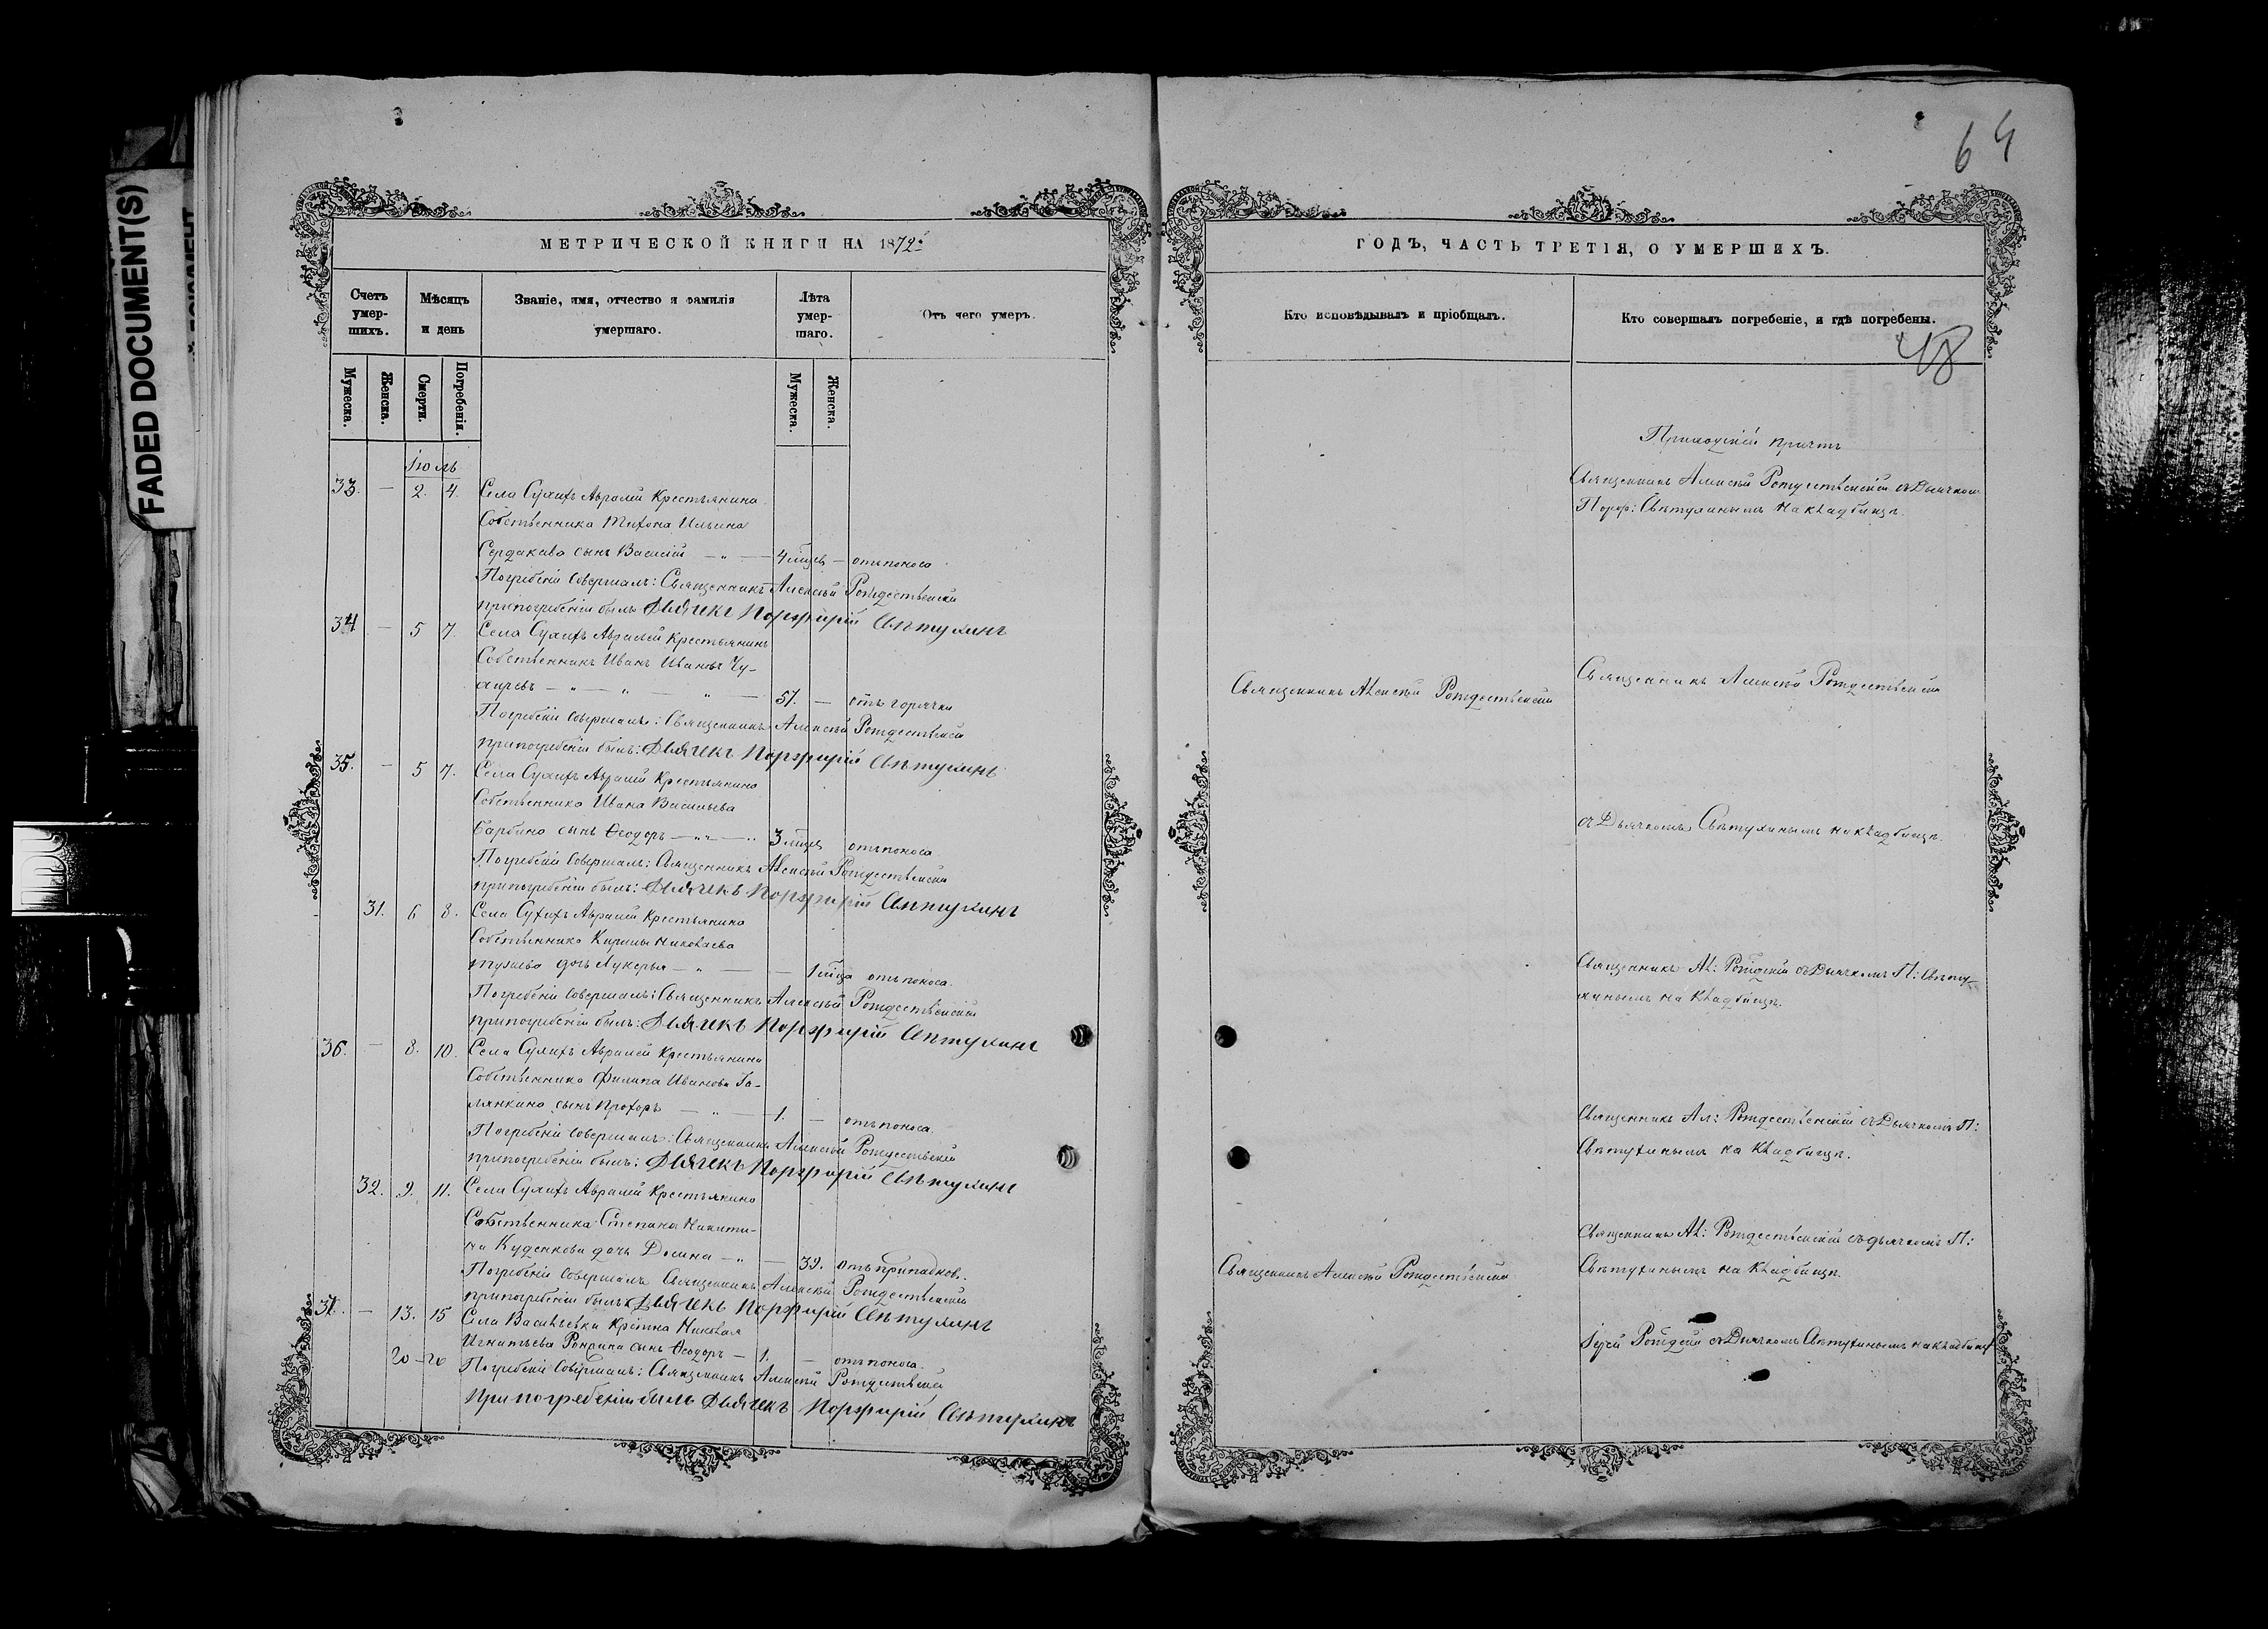 FADED DOCUMENT(S)
64
МЕТРИЧЕСКОЙ КНИГИ НА 1872й
Счетъ умер-шихъ.
Мѣсяцъ и день
Званіе, имя, отчество и фамилія умершаго.
Лѣта умер-шаго.
Отъ чего умеръ.
Мужеска.
Женска.
Смерти.
Погребенія.
Мужеска.
Женска.
Іюль
33. — 2. 4. Села Сухихъ Авралей Крестьянина
Собственника Тихона Ильина
сынъ Василій — " — 4 мцъ — отъ поноса
Погребеніе Совершалъ: Священникъ Алексѣй Рождественскій
при погребеніи былъ Дьячекъ Порфирій Свѣтухинъ
34 — 5 7. Села Сухихъ Авралей Крестьянинъ
Собственникъ Иванъ Ивановъ Чу-
— " — " — " — 57. — отъ горячки
Погребеніе Совершалъ: Священникъ Алексѣй Рождественскій
при погребеніи былъ: Дьячекъ Порфирій Свѣтухинъ
35. — 5 7. Села Сухихъ Авралей Крестьянина
Собственника Ивана Васильева
Барбина сынъ Ѳеодоръ — " — 3 мцъ отъ поноса
Погребеніе Совершалъ: Священникъ Алексѣй Рождественскій
при погребеніи былъ: Дьячекъ Порфирій Свѣтухинъ
31. 6 8. Села Сухихъ Авралей Крестьянина
Собственника Николаева
дочь Лукерья — " — 1 мца отъ поноса.
Погребеніе Совершалъ: Священникъ Алексѣй Рождественскій
при погребеніи былъ: Дьячекъ Порфирій Свѣтухинъ
36. — 8. 10. Села Сухихъ Авралей Крестьянина
Собственника Филипа Иванова Го-
лянкина сынъ Прохоръ — " — 1. — отъ поноса.
Погребеніе Совершалъ: Священникъ Алексѣй Рождественскій
при погребеніи былъ: Дьячекъ Порфирій Свѣтухинъ
32. 9. 11. Села Сухихъ Авралей Крестьянина
Собственника Степана Никити-
на Куденкова дочь Домна — " — 39. отъ припадковъ.
Погребеніе Совершалъ Священникъ Алексѣй Рождественскій
при погребеніи былъ Дьячекъ Порфирій Свѣтухинъ
37. — 13. 15 Села Васильевки Крстна Николая
Игнатьева сынъ Ѳеодоръ — 1. — отъ поноса.
20 — 20 Погребеніе Совершалъ: Священникъ Алексѣй Рождественскій
При погребеніи былъ Дьячекъ Порфирій Свѣтухинъ
ГОДЪ, ЧАСТЬ ТРЕТІЯ, О УМЕРШИХЪ.
Кто исповѣдывалъ и пріобщалъ.
Кто совершалъ погребеніе, и гдѣ погребены.
48
Приходскій причтъ
Священникъ Алексѣй Рождественскій съ Дьячком
Порф: Свѣтухинымъ на кладбищѣ.
Священникъ Алексѣй Рождественскій
Священникъ Алексѣй Рождественскій
съ Дьячкомъ Свѣтухинымъ на кладбищѣ.
Священникъ Ал: Рождскій съ Дьячкомъ П: Свѣту-
хинымъ на кладбищѣ.
Священникъ Ал: Рождественскій съ Дьячкомъ П:
Свѣтухинымъ на кладбищѣ.
Священникъ Алексѣй Рождественскій
Священникъ Ал: Рождественскій съ дьячкомъ П:
Свѣтухинымъ на кладбищѣ.
Іерей Рождскій съ Дьячкомъ Свѣтухинымъ на кладбищѣ